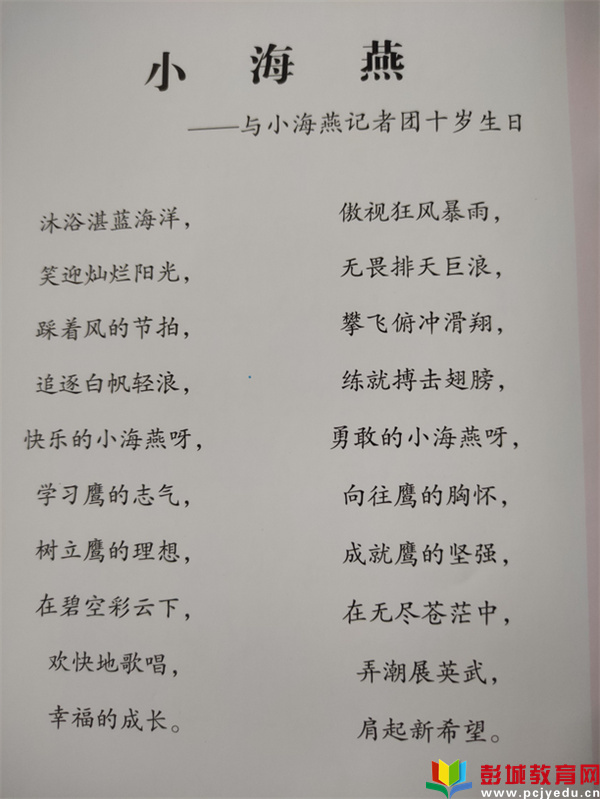 小海燕
——与小海燕记者团十岁生日
沐浴湛蓝海洋，
笑迎灿烂阳光，
踩着风的节拍，
追逐白帆轻浪，
快乐的小海燕呀，
学习鹰的志气，
树立鹰的理想，
在碧空彩云下，
欢快地歌唱，
幸福的成长。
傲视狂风暴雨，
无畏排天巨浪，
攀飞俯冲滑翔，
练就搏击翅膀，
勇敢的小海燕呀，
向往鹰的胸怀，
成就鹰的坚强，
在无尽苍茫中，
弄潮展英武，
肩起新希望。
彭城教育网
www.pcjyedu.cn